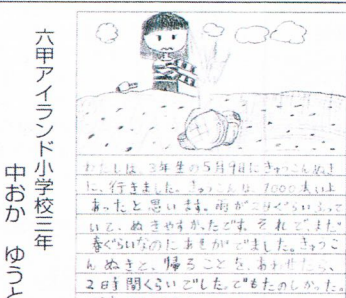 六甲アイランド小学校三年
中おか ゆうと
わたしは、3年生の5月9日にきょうこんぬき
に、行きました。きょうこんは、1000本いよ
あったと思います。雨が三日ぐらいふって
いて、ぬきやすかったです。それでまだ
春ぐらいなのにあせがでました。きょうこ
んぬきと、帰ることを、あわせたら、
2時間くらいでした。でもたのしかった。